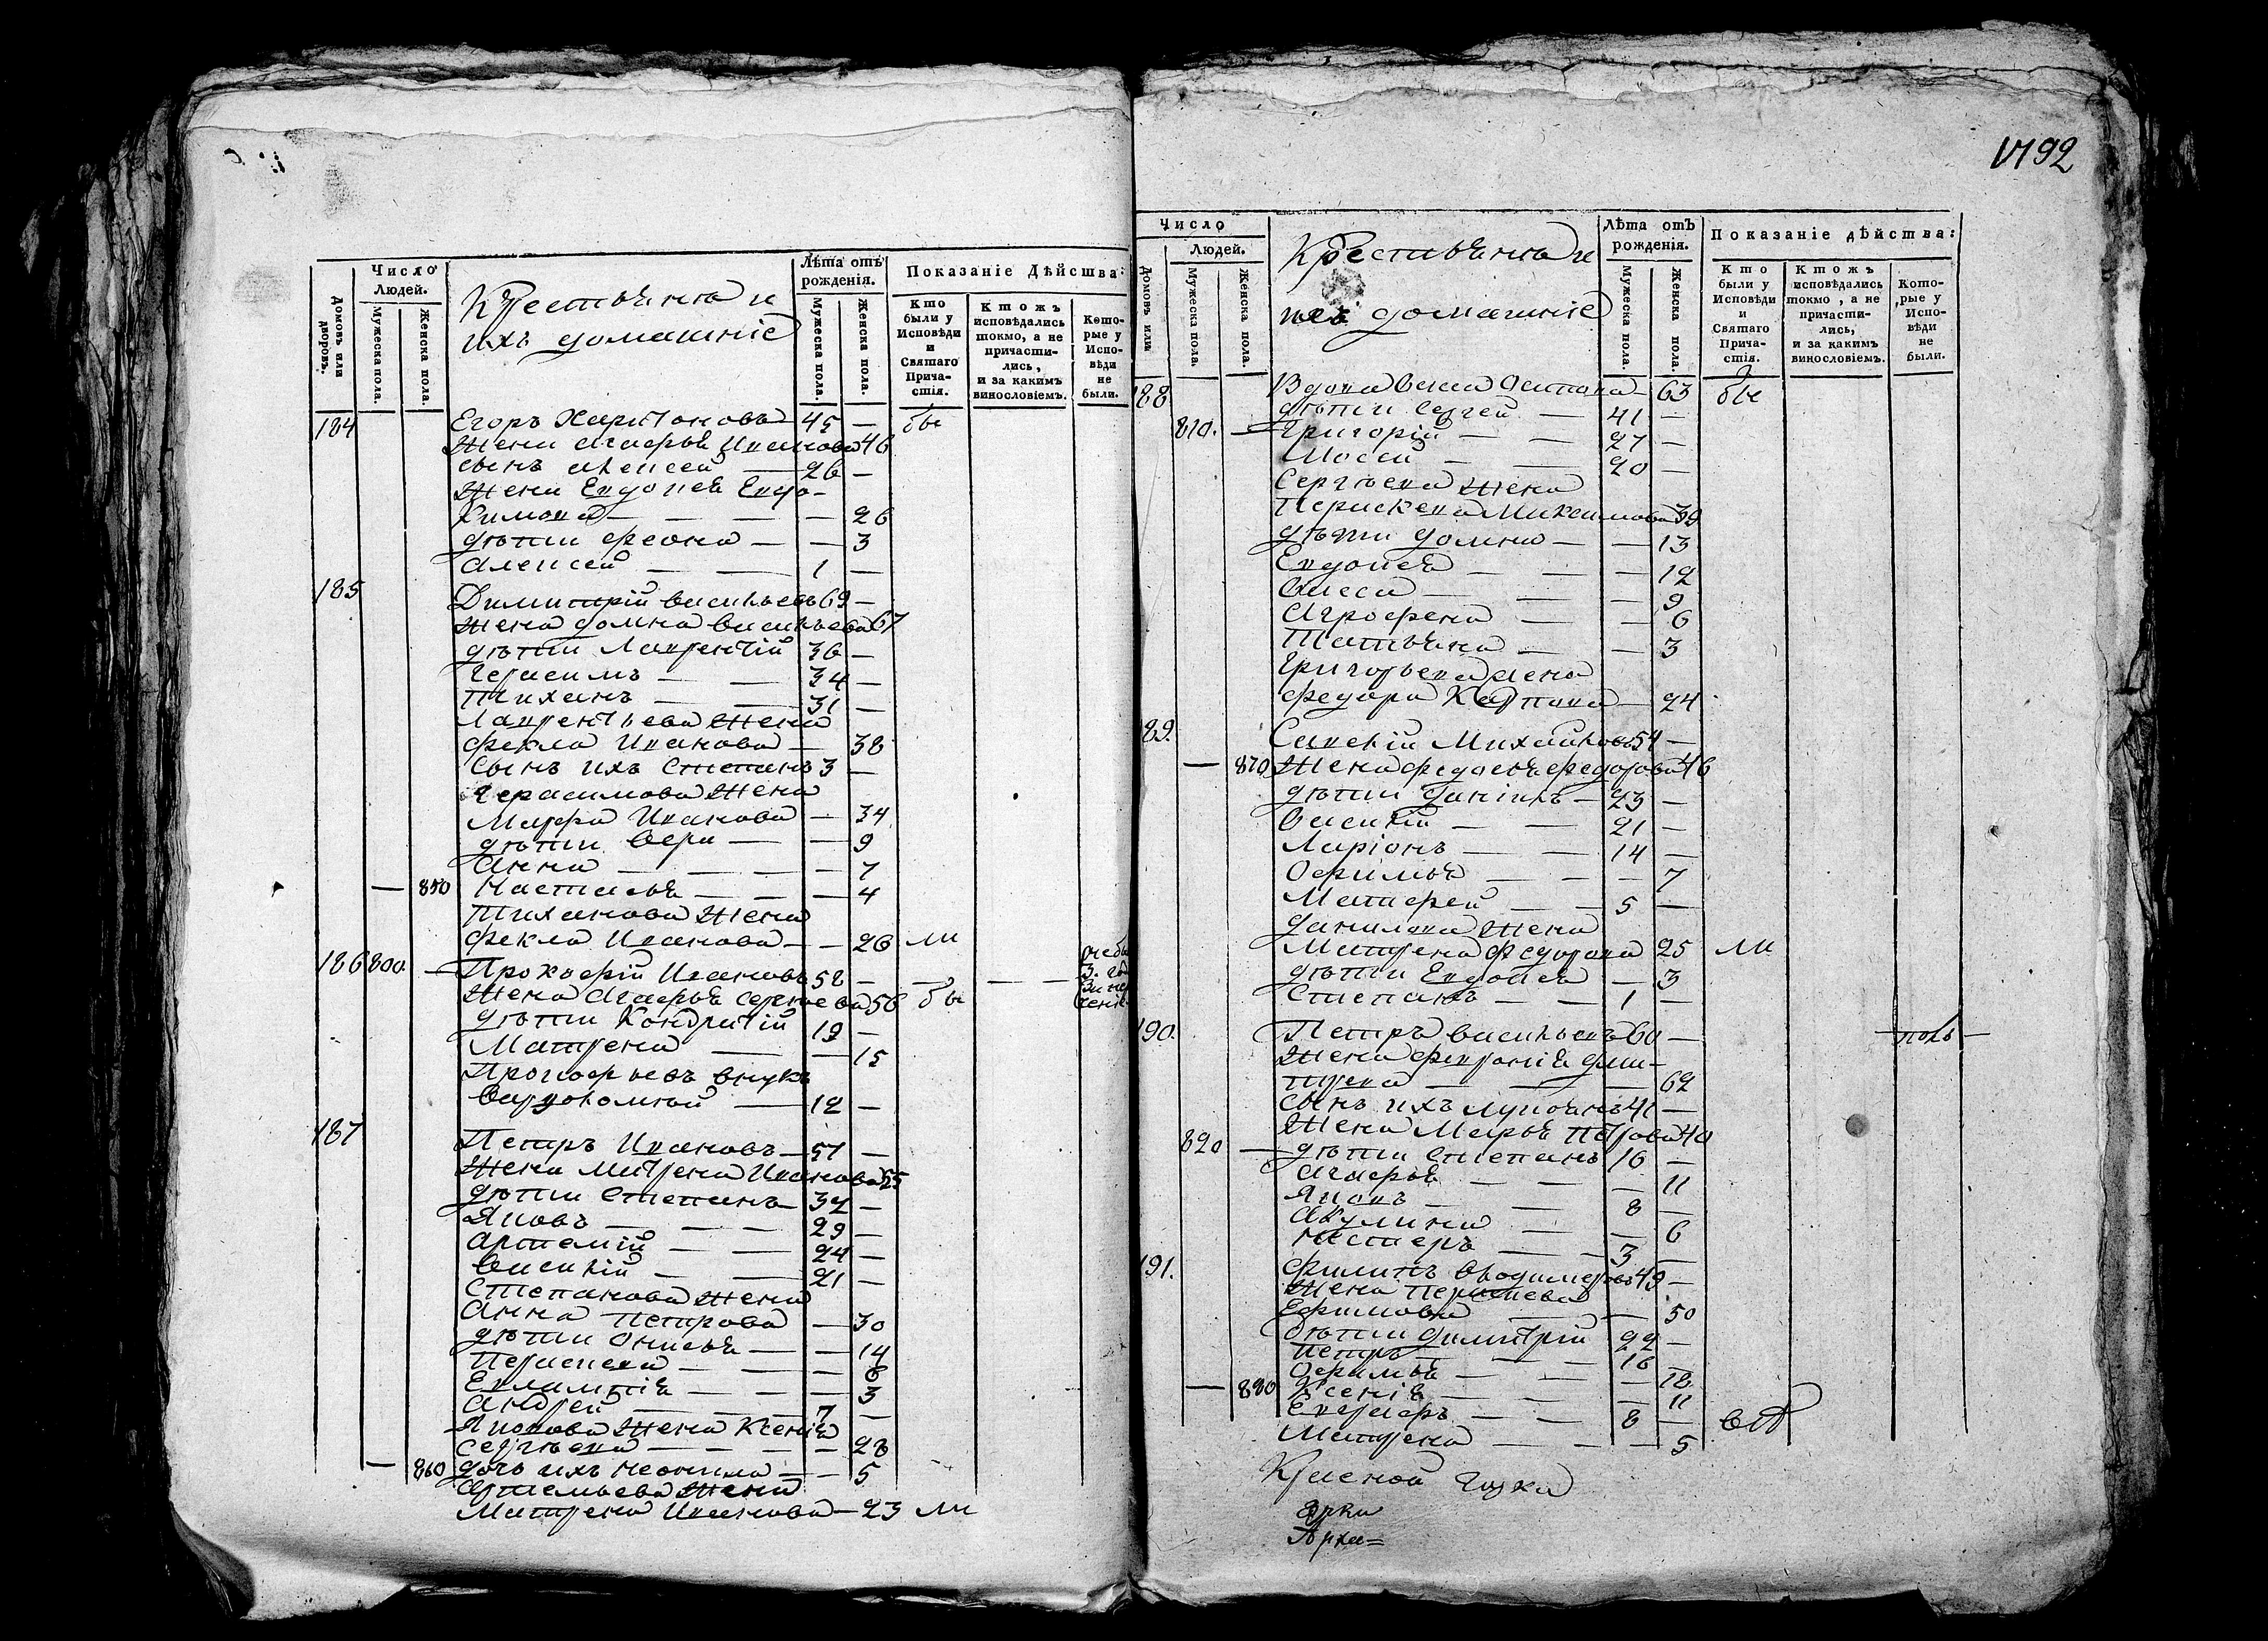 Число
Людей.
Домовъ или дворовъ.
Мужеска пола.
Женска пола.
Крестьяна и
ихъ домашніе
Лѣта отъ
рожденія.
Мужеска пола.
Женска пола.
Показаніе Дѣйства:
Кто были у Исповѣди и Святаго Прича-стія.
Ктожъ исповѣдались токмо, а не причасти-лись, и за какимъ винословіемъ.
Кото-рые у Испо-вѣди не были.
184 Егоръ Харитоновъ 45 — бы
Жена Агафья Иванова 46
сынъ Алексей — 26 —
Жена Евдокея Евдо-
кимова — — — — 26
дѣти Феона — — 3
Алексей — — 1 —
185 Димитрій Васильевъ 69 —
Жена Домна Васильева 67
дѣти Лаврентій 36 —
Герасимъ — — 34 —
Тиханъ — — 31 —
Лаврентьева Жена
Фекла Иванова — 38
Сынъ ихъ Степанъ 3 —
Герасимова Жена
Марфа Иванова — 34
дѣти Вера — — 9
Анна — — — — 7
— 850 Настасья — — — 4
Тиханова Жена
Фекла Иванова — — 26 ли
186 800. — Прокофій Ивановъ 58 — — —
Жена Агафья Сергѣева 56 бы
дѣти Кондратій 19 —
Матрена — — 15
Прокофьевъ внукъ
Варфоломѣй — 12 —
187 Петръ Ивановъ — 57 —
Жена Матрена Иванова 55
дѣти Степанъ — 32 —
Яковъ — — — 29 —
Артемій — — 24 —
Василій — — 21 —
Степанова Жена
Анна Петрова — 30
дѣти Анисья — — 14
Параскева — — — 6
Евлампія — — — 3
Андрей — — — 7 —
Яковова Жена Ксенія
Сергѣева — — — — 28
— 860 дочь ихъ Неонила — — 5
Артемьева Жена
Матрена Иванова — 23 ли
1792
Число
Людей.
Домовъ или
Мужеска пола.
Женска пола.
Крестьяна и
ихъ домашніе
Лѣта отъ
рожденія.
Мужеска пола.
Женска пола.
Показаніе дѣйства:
Кто были у Исповѣди и Святаго Прича-стія.
Ктожъ исповѣдались токмо, а не причасти-лись, и за какимъ винословіемъ.
Кото-рые у Испо-вѣди не были.
188 Вдова 63 бы
дѣти Сергей — 41 —
810. — Григорій — — 27 —
Мосей — — 20 —
Сергѣева Жена
Параскева Максимова 39
дѣти Домна — — 13
Евдокея — — — 12
Васса — — — 9
Агрофена — — 6
Татьяна — — 3
Григорьева жена
Федора Карпова — 24
189. Савелій Михайловъ 54 —
— 870 Жена Федосья Федорова 46
дѣти Данилъ — 23 —
Василій — — 21 —
Ларіонъ — — 14 —
Офимья — — — 7
Матфей — — 5 —
Данилова Жена
Матрена Федорова 25 ли
дѣти Евдокея — 3
Степанъ — — 1 —
190. Петръ Васильевъ 60 —
Жена Февронія Дми-
трева — — — 62
Сынъ ихъ Лукьянъ 41 —
Жена Марья Петрова 40
820 — дѣти Степанъ 16 —
Агафья — — — 11
Яковъ — — 8 —
Акулина — — — 6
Нестеръ — — 3 —
191. Филипъ Владимеровъ 49 —
Жена Параскева
Ефимова — — 50
дѣти Димитрій 22 —
Петръ — — — 16 —
Офимья — — — 12
— 880 Ксенія — — — 11
Евграфъ — — 8 —
Матрена — — — 5
Красной Горки